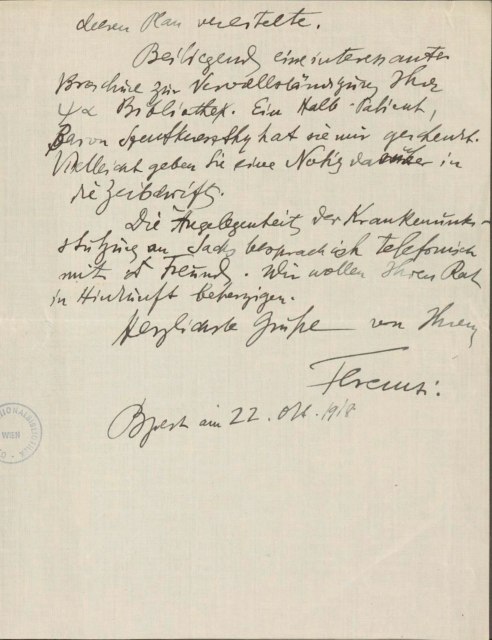 diesen Plan vereitelte.
Beiliegend eine interessante
Broschüre zur Vervollständigung Ihrer
ψα Bibliothek. Ein Halb-Patient,
Baron hat sie mir geschenkt.
Vielleicht geben Sie eine Notiz darüber in
die Zeitschrift.
Die Angelegenheit der Krankenunter-
stützung an Sachs besprach ich telefonisch
mit Freund. Wir wollen Ihren Rat
in Hinkunft beherzigen.
Herzlichste Grüße von Ihrem
Ferenczi.
Bpest am 22. Okt. 1918
WIEN